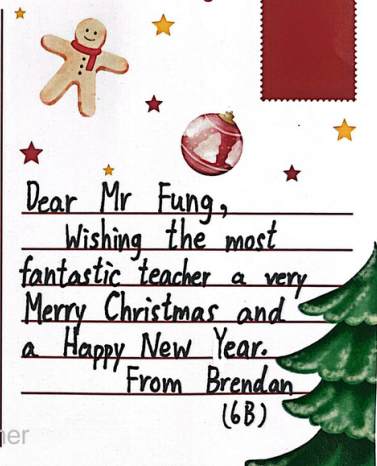 Dear Mr Fung,
Wishing the most
fantastic teacher a very
Merry Christmas and
a Happy New Year.
From Brendan
(6B)